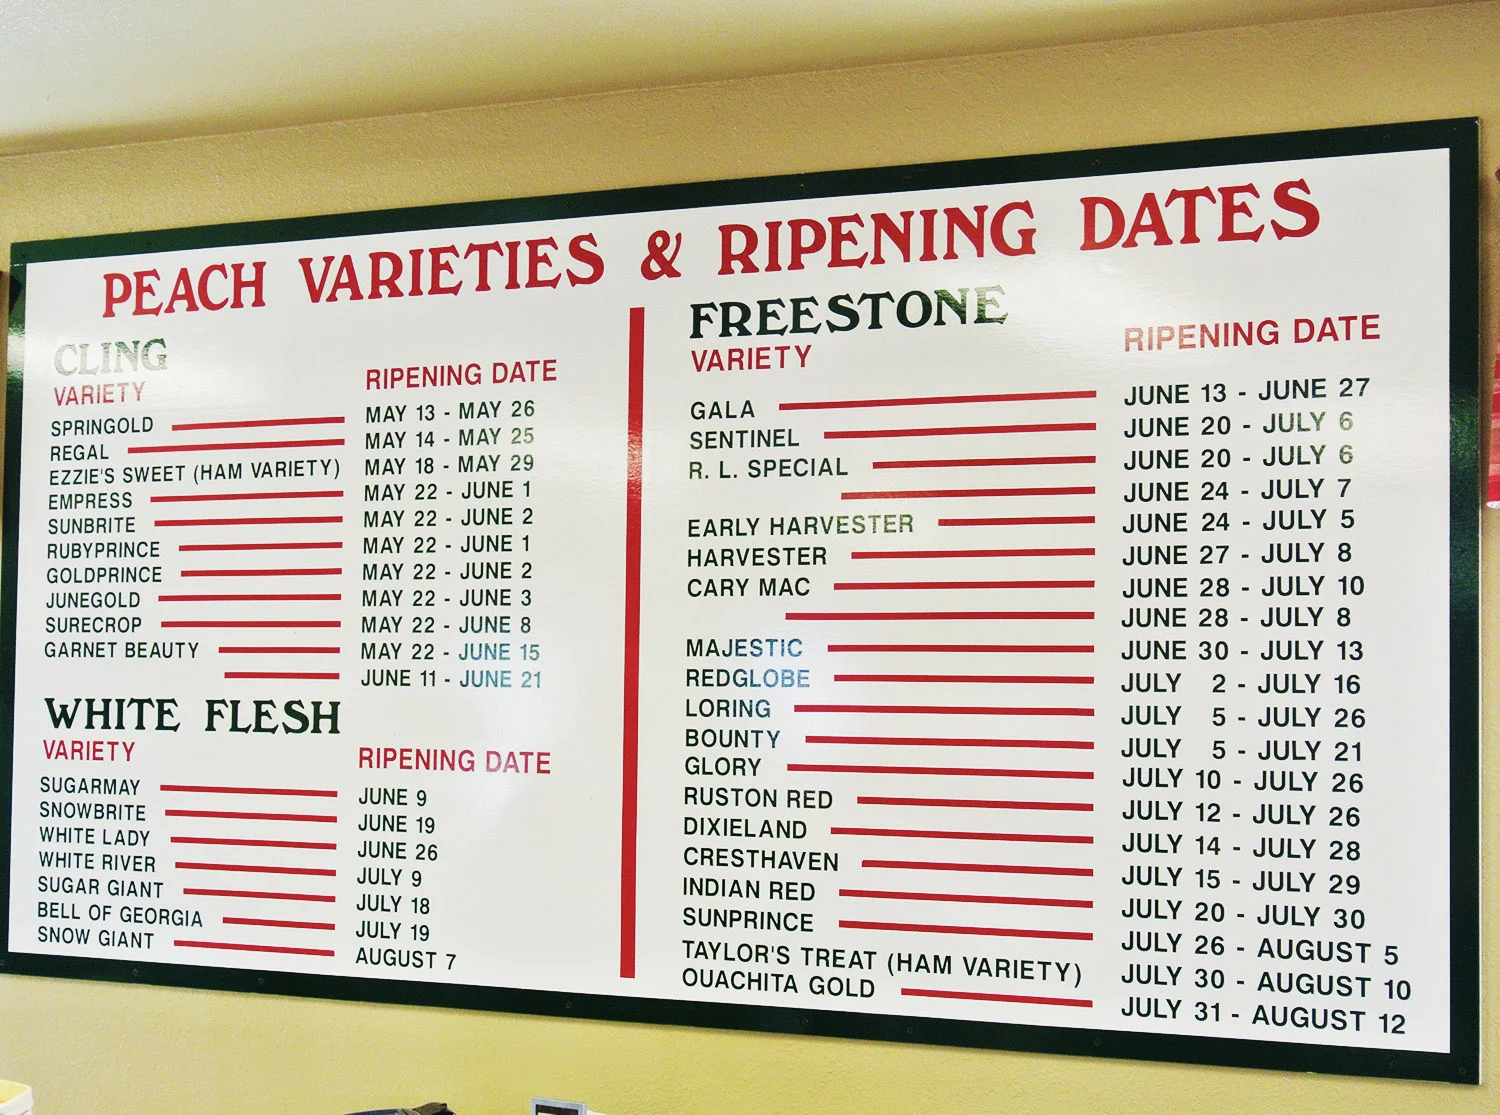 PEACH VARIETIES & RIPENING DATES
CLING
VARIETY RIPENING DATE
SPRINGOLD MAY 13 - MAY 26
REGAL MAY 14 - MAY 25
EZZIE'S SWEET (HAM VARIETY) MAY 18 - MAY 29
EMPRESS MAY 22 - JUNE 1
SUNBRITE MAY 22 - JUNE 2
RUBYPRINCE MAY 22 - JUNE 1
GOLDPRINCE MAY 22 - JUNE 2
JUNEGOLD MAY 22 - JUNE 3
SURECROP MAY 22 - JUNE 8
GARNET BEAUTY MAY 22 - JUNE 15
JUNE 11 - JUNE 21
WHITE FLESH
VARIETY RIPENING DATE
SUGARMAY JUNE 9
SNOWBRITE JUNE 19
WHITE LADY JUNE 26
WHITE RIVER JULY 9
SUGAR GIANT JULY 18
BELL OF GEORGIA JULY 19
SNOW GIANT AUGUST 7
FREESTONE
VARIETY RIPENING DATE
GALA JUNE 13 - JUNE 27
SENTINEL JUNE 20 - JULY 6
R. L. SPECIAL JUNE 20 - JULY 6
JUNE 24 - JULY 7
EARLY HARVESTER JUNE 24 - JULY 5
HARVESTER JUNE 27 - JULY 8
CARY MAC JUNE 28 - JULY 10
JUNE 28 - JULY 8
MAJESTIC JUNE 30 - JULY 13
REDGLOBE JULY 2 - JULY 16
LORING JULY 5 - JULY 26
BOUNTY JULY 5 - JULY 21
GLORY JULY 10 - JULY 26
RUSTON RED JULY 12 - JULY 26
DIXIELAND JULY 14 - JULY 28
CRESTHAVEN JULY 15 - JULY 29
INDIAN RED JULY 20 - JULY 30
SUNPRINCE JULY 26 - AUGUST 5
TAYLOR'S TREAT (HAM VARIETY) JULY 30 - AUGUST 10
OUACHITA GOLD JULY 31 - AUGUST 12